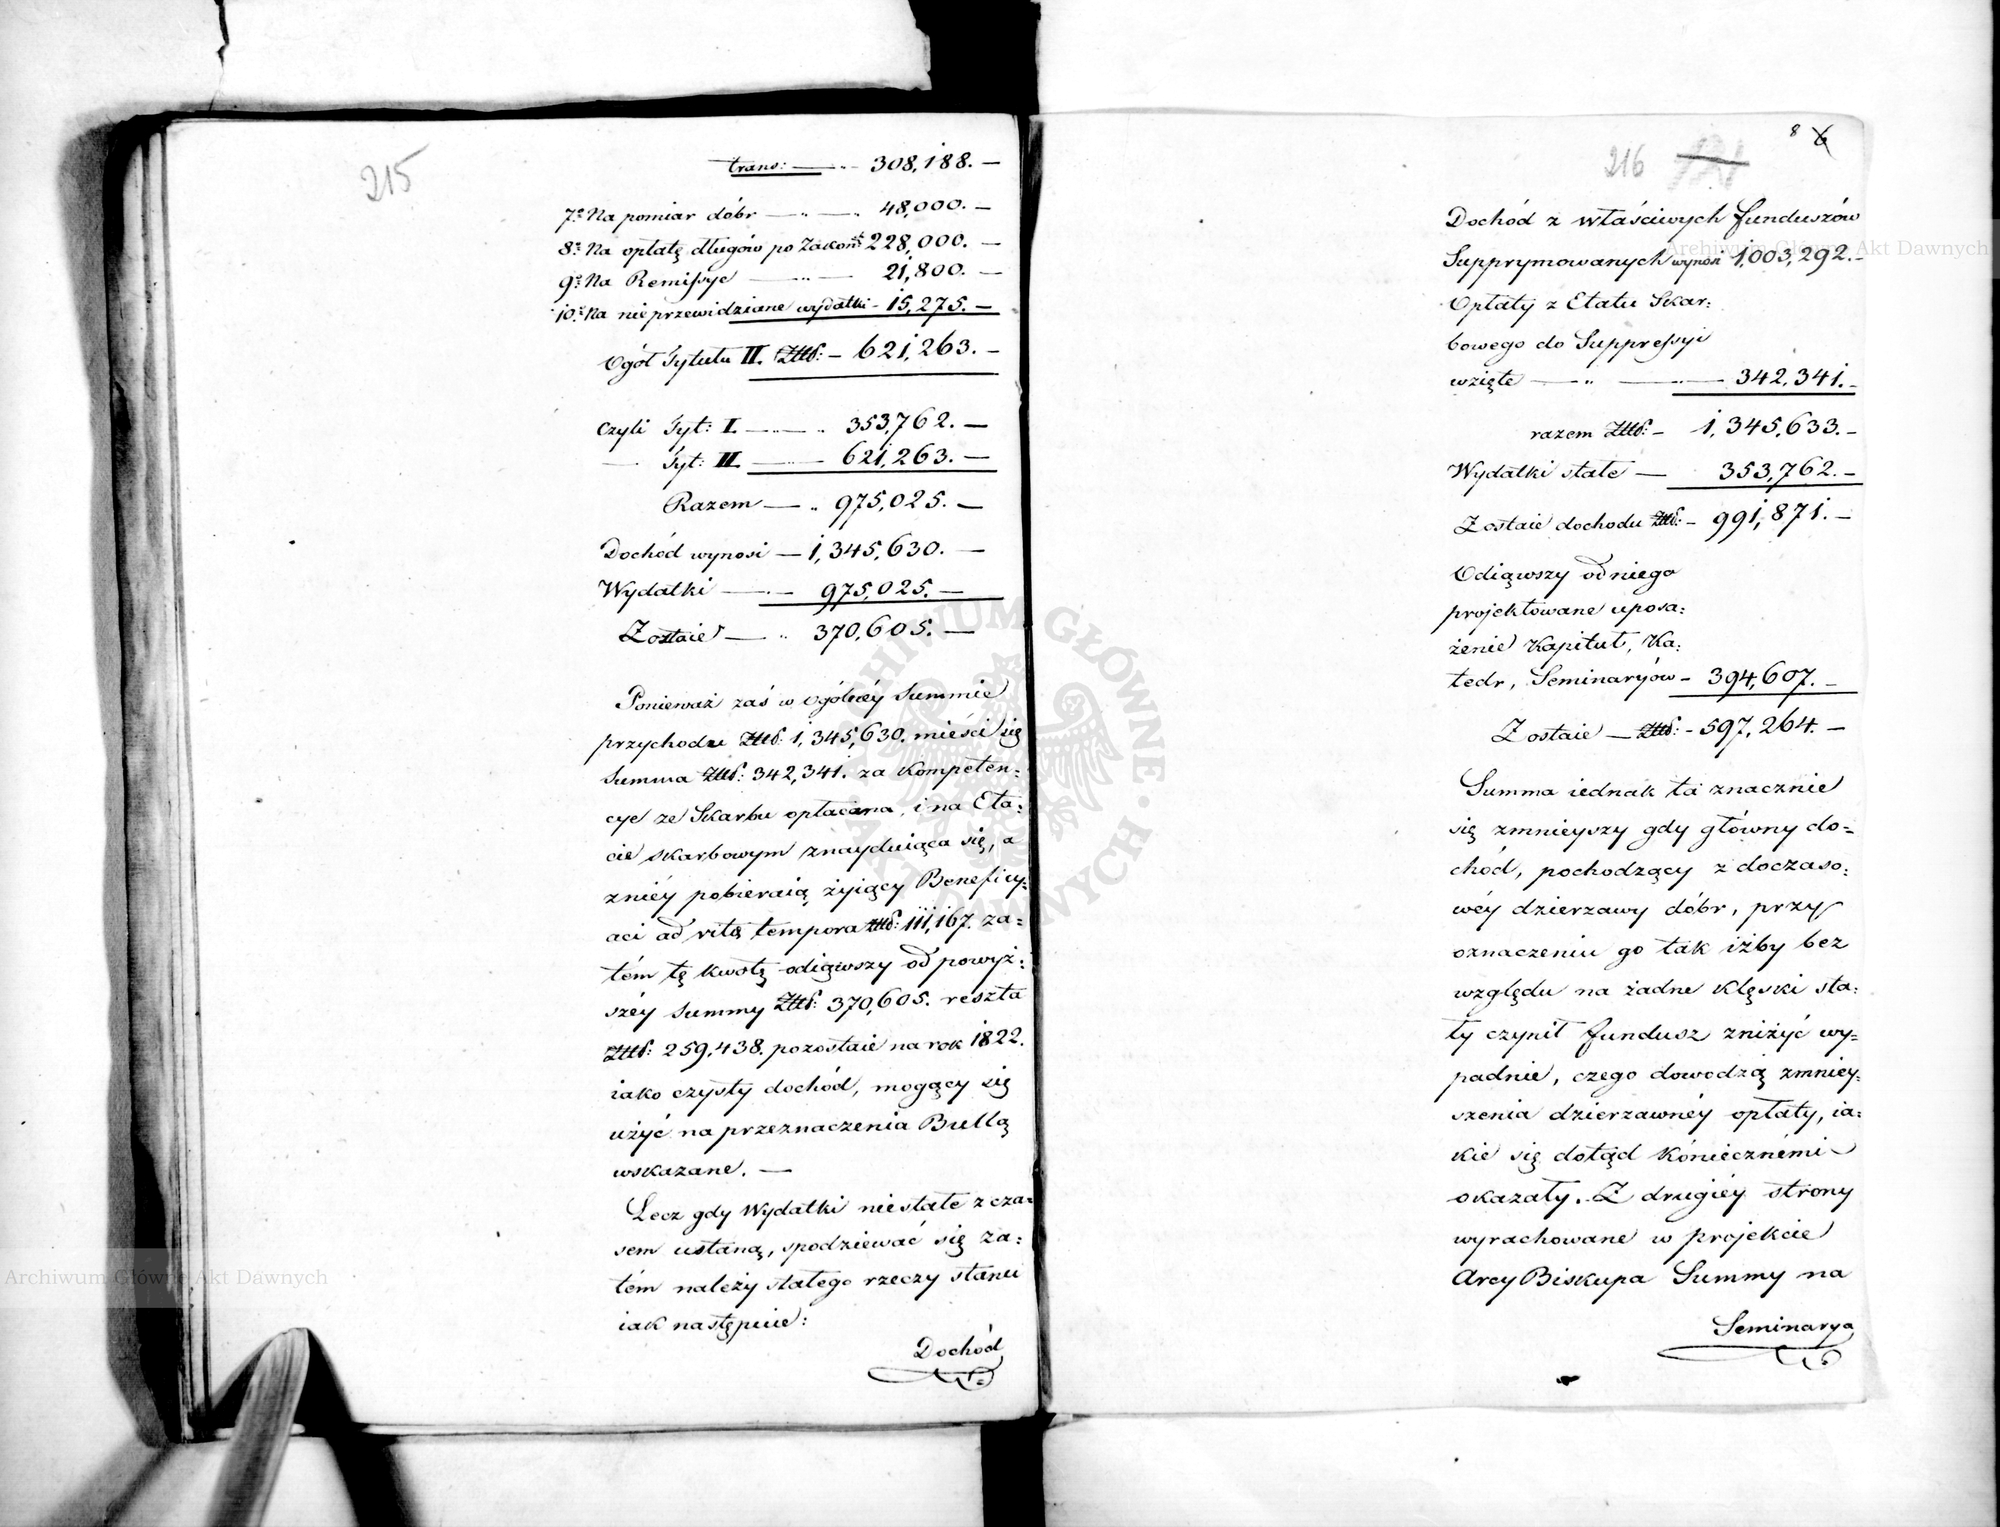 215
trans: — 308,188. —
7º Na pomiar dóbr — 48,000. —
8º Na opłatę długów po Zakonach 228,000. —
9º Na Remissye — 21,800. —
10º Na nieprzewidziane wydatki - 15,275. —
Ogół Tytułu II. Złtt: — 621,263. —
Czyli Tyt: I. — 353,762. —
— Tyt: II. — 621,263. —
Razem — 975,025. —
Dochód wynosi — 1,345,630. —
Wydatki — 975,025. —
Zostaie — 370,605. —
Ponieważ zaś w ogólnéy Summie
przychodu Złtt: 1,345,630. mieści się
Summa Złtt: 342,341. za kompeten=
cye ze Skarbu opłacana, i na Eta=
cie skarbowym znayduiąca się, a
zniéy pobieraią żyiący Beneficy=
aci ad vitæ tempora Złtt: 111,167. za=
tém tę kwotę odiąwszy od powyż=
széy Summy Złtt: 370,605. reszta
Złtt: 259,438. pozostaie na rok 1822.
iako czysty dochód, mogący się
użyć na przeznaczenia Bullą
wskazane. —
Lecz gdy Wydatki niestałe z cza=
sem ustaną, spodziewać się za=
tém należy stałego rzeczy stanu
iak następuie:
Dochód
8 6
216 121
Dochód z właściwych funduszów
Supprymowanych wynosi 1,003,292. —
Opłaty z Etatu Skar=
bowego do Suppressyi
wzięte — 342,341. —
razem Złtt: — 1,345,633. —
Wydatki stałe — 353,762. —
Zostaie dochodu Złtt: — 991,871. —
Odiąwszy od niego
projektowane uposa=
żenie Kapituł, Ka=
tedr, Seminaryów — 394,607. —
Zostaie — Złtt: — 597,264. —
Summa iednak ta znacznie
się zmnieyszy gdy główny do=
chód, pochodzący z doczaso=
wéy dzierzawy dóbr, przy
oznaczeniu go tak iżby bez
względu na żadne klęski sta=
ły czynił fundusz zniżyć wy=
padnie, czego dowodzą zmniey=
szenia dzierzawnéy opłaty, ia=
kie się dotąd koniecznémi
okazały. Z drugiéy strony
wyrachowane w projekcie
Arcy Biskupa Summy na
Seminarya
Archiwum Główne Akt Dawnych
Archiwum Główne Akt Dawnych
ARCHIWUM GŁÓWNE AKT DAWNYCH